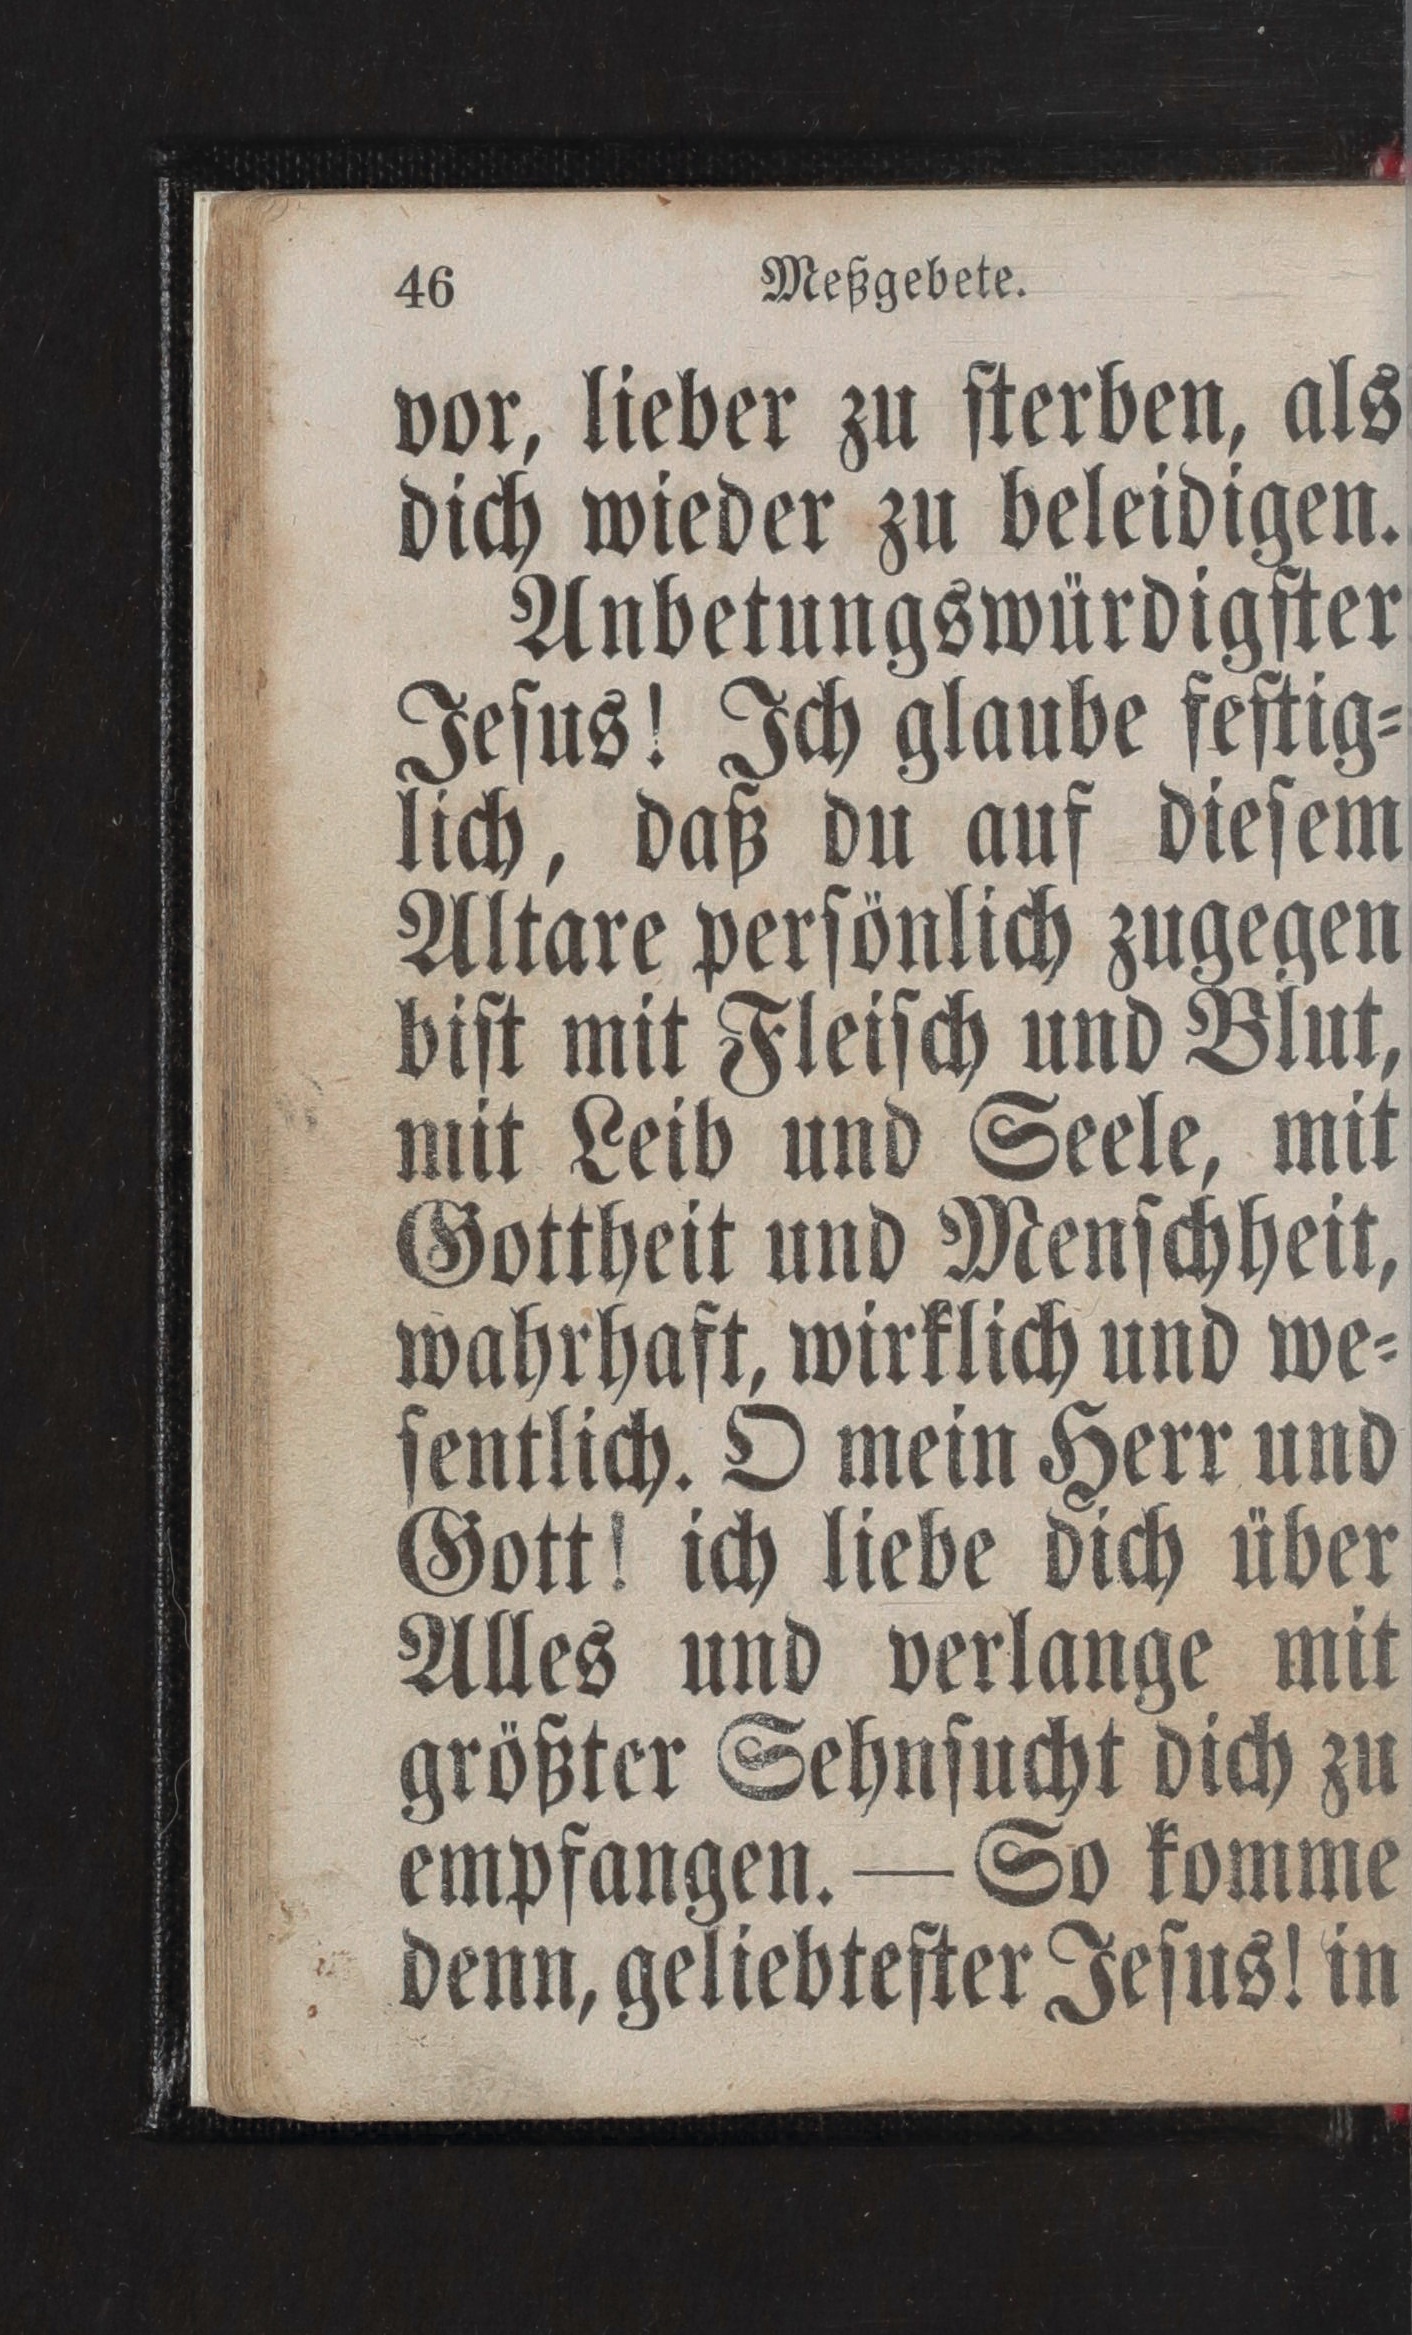 46 Meßgebete.
vor, lieber zu ſterben, als
dich wieder zu beleidigen.
Anbetungswürdigſter
Jeſus! Ich glaube feſtig⸗
lich, daß du auf dieſem
Altare perſönlich zugegen
biſt mit Fleiſch und Blut,
mit Leib und Seele, mit
Gottheit und Menſchheit,
wahrhaft, wirklich und we⸗
ſentlich. O mein Herr und
Gott! ich liebe dich über
Alles und verlange mit
größter Sehnſucht dich zu
empfangen. — So komme
denn, geliebteſter Jeſus! in